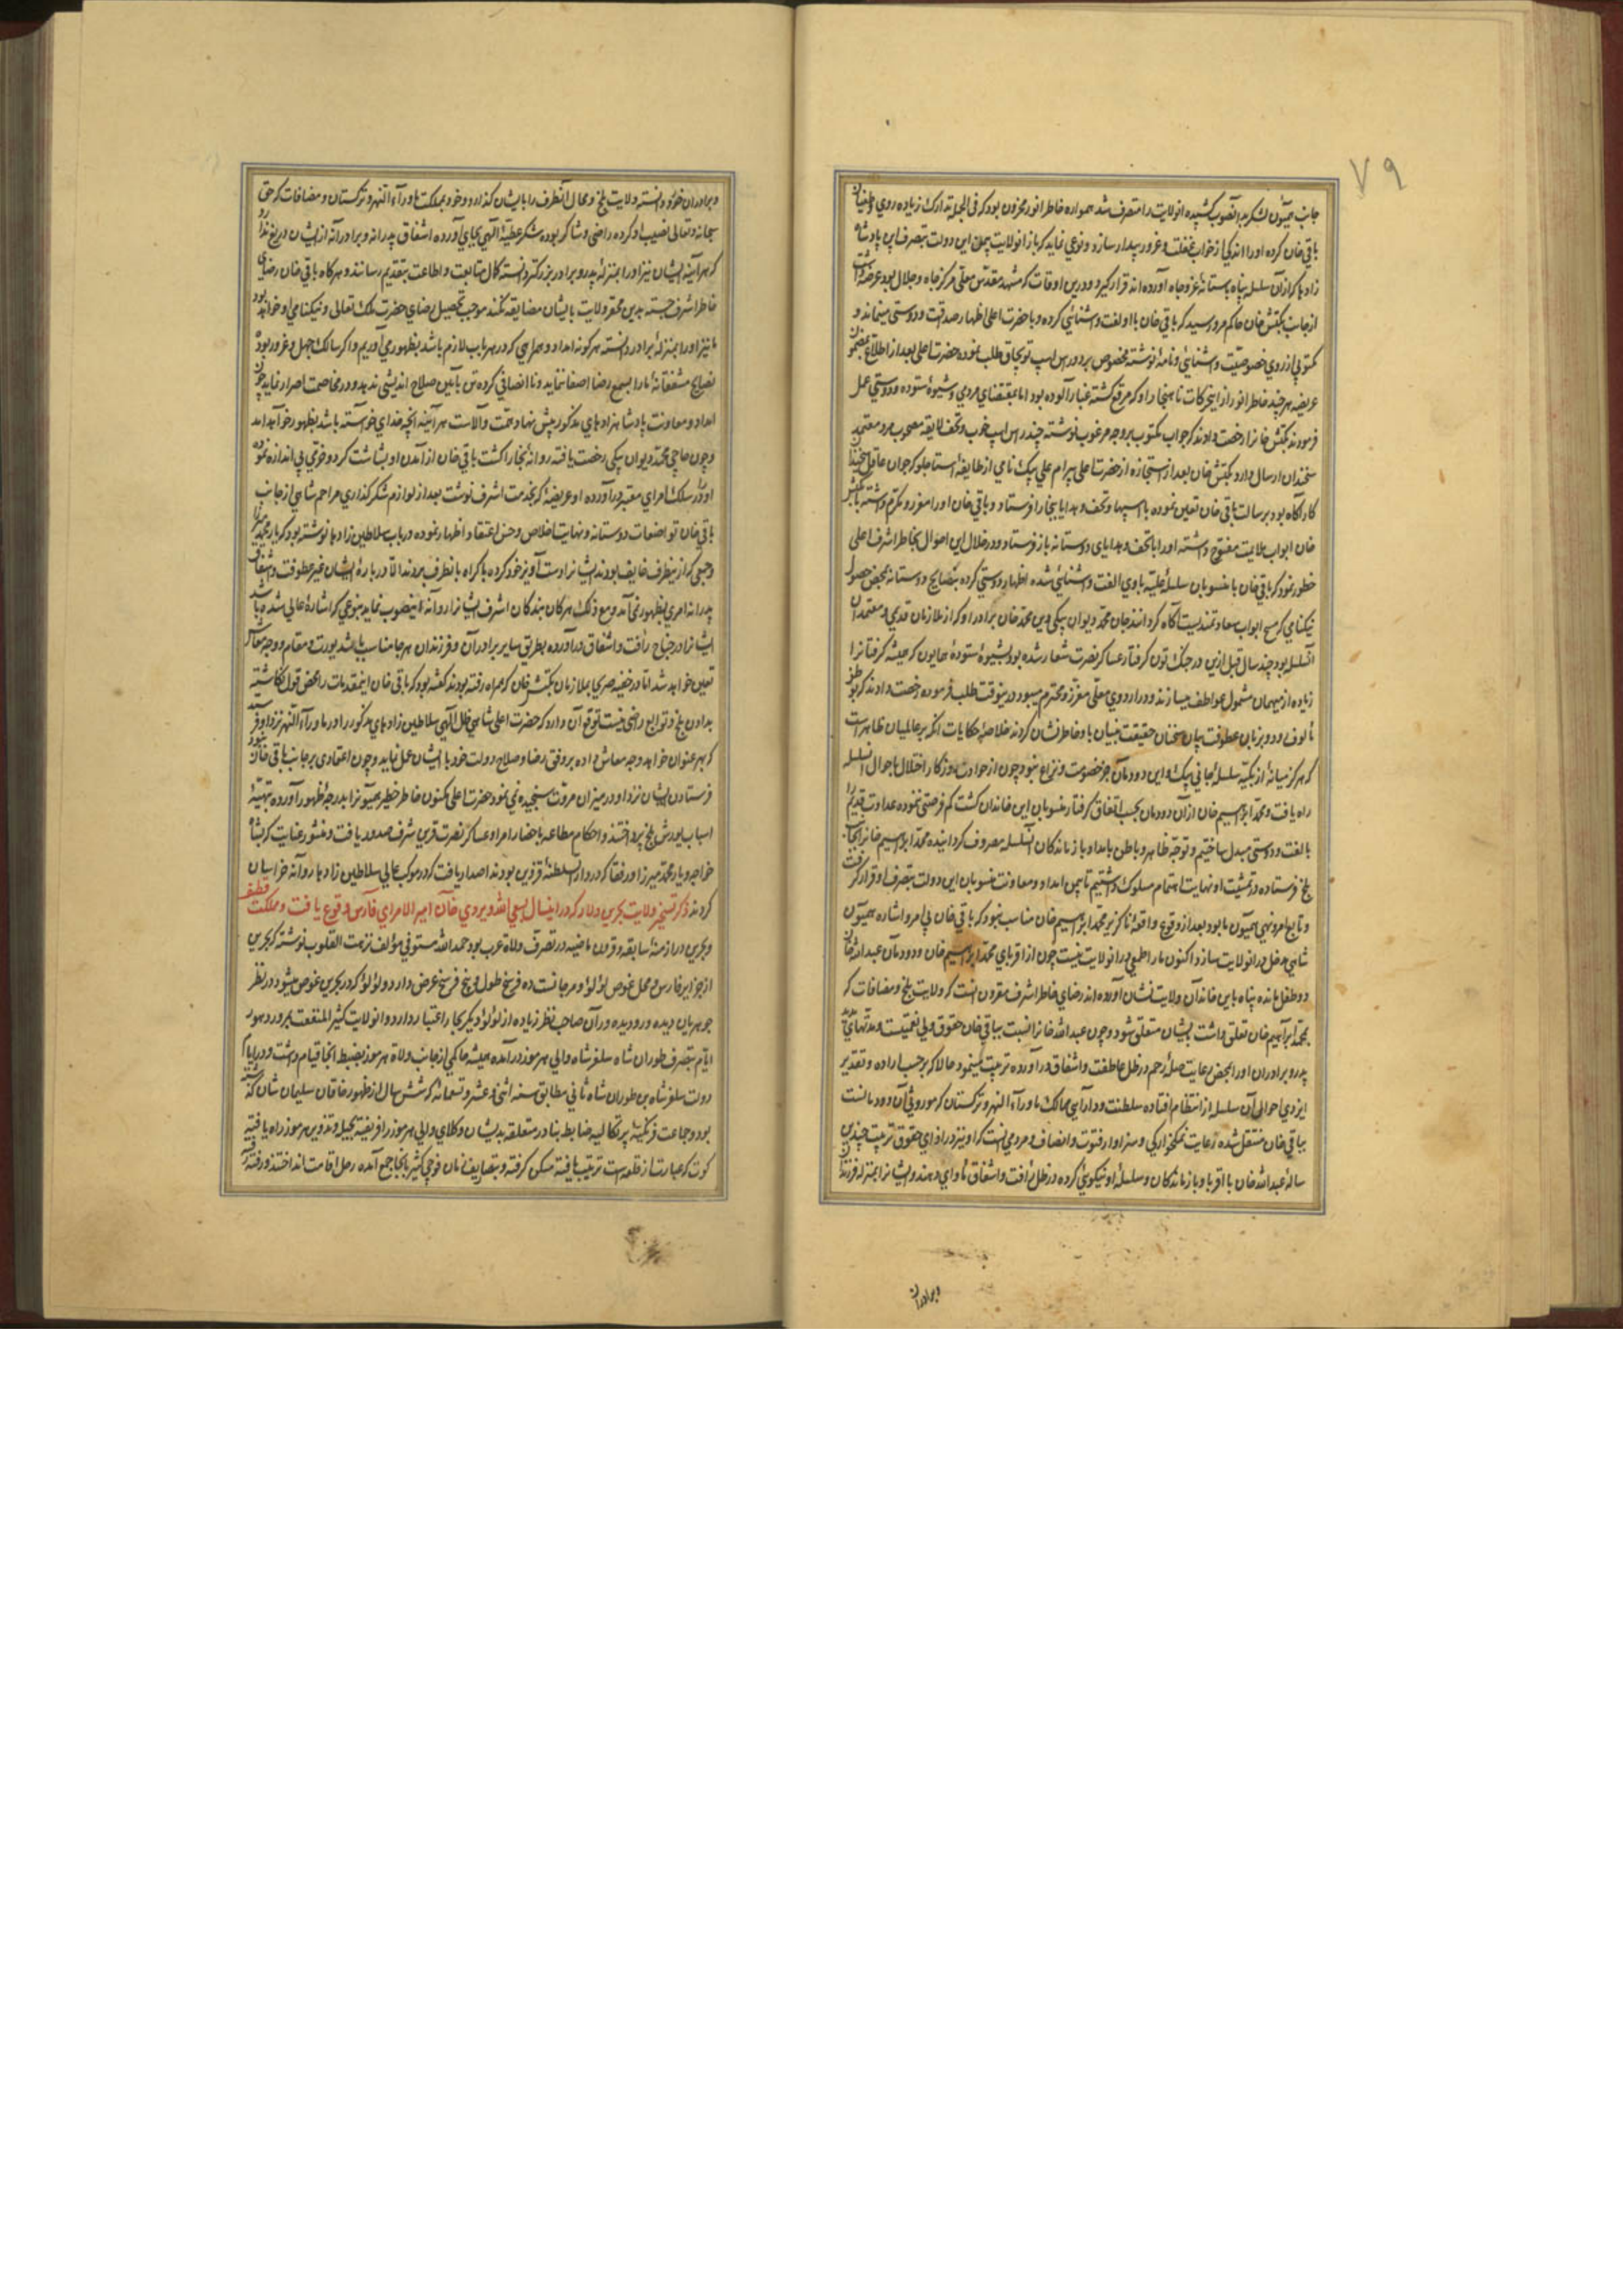 ۷۹
جانب همیون لشکر بدانصوب کشیده انولایت را متصرف شد همواره خاطر انور محزون بود که فی الجمله تدارک زیاده روی و طغیان
باقی خان کرده او را اندکی از خواب غفلت و غرور بیدار سازد و نوعی نماید که باز انولایت بیمن این دولت بتصرف این پادشاه
زادها که از آن سلسله پناه باستانهٔ عز و جاه آورده اند قرار گیرد و درین اوقات که مشهد مقدس معلی مرکز جاه و جلال بود عرضه داشت
از جانب بکتش خان حاکم مرو رسید که باقی خان با او الفت و آشنائی کرده و با حضرت اعلی اظهار صداقت و دوستی مینماید و
مکتوبی از روی خصوصیت و آشنائی و نامهٔ نوشته مخصوص بردو راس اسب توبچاق طلب نموده حضرت اعلی بعد از اطلاع بمضمون
عریضه هر چند خاطر انور از این حرکات ناهنجار او که مرقوم گشته غبار آلوده بود اما بمقتضای مردمی و شیوهٔ ستوده دوستی عمل
فرمودند بکتش خانرا رخصت دادند که جواب مکتوب بر وجه مرغوب نوشته چند راس اسب خوب و تحف لایقه مصحوب مرد معتمد
سخندان ارسال دارد بکتش خان بعد از استجازه از حضرت اعلی بیرام علی بیک نامی از طایفهٔ استاجلو که جوان عاقل سخندان
کار آگاه بود برسالت باقی خان تعیین نموده با اسبها و تحف و هدایا ببخارا فرستاد و باقی خان او را معزز و مکرم داشته با بکتش
خان ابواب ملایمت مفتوح داشته او را با تحف و هدایای دوستانه باز فرستاد و در خلال این احوال بخاطر اشرف اعلی
خطور نمود که باقی خان با منسوبان سلسلهٔ علیه بادی الفت و آشنائی شده اظهار دوستی کرده بنصایح دوستانه بمحض حصول
نیکنامی که مسبح ابواب سعادتمندیست آگاه گردانند جان محمد دیوان بیکی دین محمد خان برادر او که از ملازمان قدیمی و معتمدان
آنسلسله بود چند سال قبل ازین در جنگ تون گرفتار عساکر نصرت شعار شده بود بشیوهٔ ستودهٔ همایون که همیشه گرفتارانرا
زیاده از میهمان مشمول عواطف میسازند و در اردوی معلی معزز و محترم میبود درینوقت طلب فرموده رخصت دادند که بوطن
مألوف رود و بزبان عطوفت بیان سخنان حقیقت بنیان باو خاطر نشان کردند خلاصهٔ حکایات آنکه بر عالمیان ظاهر است
که هرگز میانهٔ ازبکیه سلسلهٔ جانی بیک و این دودمان جز خصومت و نزاع نبود چون از حوادث روزگار اختلال باحوال آنسلسله
راه یافت و محمد ابراهیم خان از آن دودمان بحسب اتفاق گرفتار منسوبان این خاندان گشت کم فرصتی ننموده عداوت قدیم را
بالفت و دوستی مبدل ساختیم و توجه ظاهر و باطن بامداد بازماندگان آنسلسله مصروف گردانیده محمد ابراهیم خانرا بجانب
بلخ فرستاده در تمشیت او نهایت اهتمام مسلوک داشتیم تا بیمن امداد و معاونت منسوبان این دولت بتصرف او قرار گرفت
و تابع امر و نهی همیون ما بود بعد از وقوع واقعهٔ ناگزیر محمد ابراهیم خان مناسب نبود که باقی خان بی امر و اشاره همیون
شاهی مدخل در انولایت سازد اکنون ما را طمعی در انولایت نیست چون از اقربای محمد ابراهیم خان و دودمان عبدالله خان
دو طفل مانده پناه باین خاندان ولایت نشان آورده اند رضای خاطر اشرف مقرون آنست که ولایت بلخ و مضافات که
بمحمد ابراهیم خان تعلق داشت بایشان متعلق شود و چون عبدالله خانرا نسبت بباقی خان حقوق ولی نعمتیست و مدتهای مدید
پدر و برادران او را بمحض رعایت صلهٔ رحم در ظل عاطفت و اشفاق در آورده تربیت مینمود و حالا که بر حسب اراده و تقدیر
ایزدی احوال آن سلسله از انتظام افتاده سلطنت و دارایی ممالک ماوراء النهر و ترکستان که موروثی آن دودمانست
بباقی خان منتقل شده رعایت نمکخوارگی و سزاوار فتوت و انصاف و مردمی آنست که او نیز در ازای حقوق تربیت چندین
سالهٔ عبدالله خان با اقربا و بازماندگان و سلسلهٔ او نیکوئی کرده در ظل رأفت و اشفاق مأوای دهند و ایشانرا بمنزله فرزندان
وبرادران
و برادران خود دانسته ولایت بلخ و محال آنطرف را بایشان گذارد و خود بمملکت ماوراء النهر و ترکستان و مضافات که حق
سبحانه و تعالی نصیب او کرده راضی و شاکر بوده شکر عطیهٔ الهی بجای آورده اشفاق پدرانه و برادرانه از ایشان دریغ ندارد
که هر آینه ایشان نیز او را بمنزلهٔ پدر و برادر بزرگتر دانسته کمال متابعت و اطاعت بتقدیم رسانند و هرگاه باقی خان رضای
خاطر اشرف جسته بدین محقر ولایت بایشان مضایقه نکند موجب تحصیل رضای حضرت ملک تعالی و نیکنامی او خواهد بود
ما نیز او را بمنزلهٔ برادر دانسته هر گونه امداد و همراهی که در هر باب لازم باشد بظهور می آوریم و اگر سالک جهل و غرور بوده
نصایح مشفقانهٔ ما را بسمع رضا اصغا ننماید و ناانصافی کرده تن بآیین صلاح اندیشی ندهد و در مخاصمت اصرار نماید چون
امداد و معاونت پادشاهزادهای مذکور پیش نهاد همت والاست هر آینه آنچه خدای خواسته باشد بظهور خواهد آمد
و چون حاجی محمد دیوان بیکی رخصت یافته روانهٔ بخارا گشت باقی خان از آمدن او بشاشت کرد و خرمی بی اندازه نموده
او را در سلک امرای معتبر در آورده او عریضهٔ که بخدمت اشرف نوشت بعد از لوازم شکر گذاری مراحم شاهی از جانب
باقی خان تواضعات دوستانه و نهایت اخلاص و حسن اعتقاد اظهار نموده در باب سلاطین زادها نوشته بود که یار محمد میرزا
و جمعی که از منطرف خایف بودند ایشانرا دست آویز خود کرده باکراه بانطرف بردند الا در بارهٔ ایشان غیر عطوفت و اشفاق
پدرانه امری بظهور نمی آمد و مع ذلک هرگاه بندگان اشرف ایشانرا روانهٔ اینصوب نماید بنوعی که اشارهٔ عالی شده باشد
ایشانرا در جناح رأفت و اشفاق در آورده بطریق سایر برادران و فرزندان هر جا مناسب باشد یورت و مقام و وجه معاش
تعیین خواهد شد اما در خفیه صریح بملازمان بکتش خان که همراه رفته بودند گفته بود که باقی خان اینمقدمات را محض قول انگاشته
بدادن بلخ و توابع راضی نیست توقع آن دارد که حضرت اعلی شاهی ظل اللهی سلاطین زادهای مذکور را در ماوراء النهر نزد او فرستند
که بهر عنوان خواهد وجه معاش داده بر وفق رضا و صلاح دولت خود با ایشان عمل نماید و چون اعتمادی بر جانب باقی خان نبود
فرستادن ایشان نزد او در میزان مروت سنجیده نمی نمود حضرت اعلی مکنون خاطر خطیر همیونرا بدرجهٔ ظهور آورده تهیهٔ
اسباب یورش بلخ پرداختند و احکام مطاعه باحضار امرا و عساکر نصرت قرین شرف صدور یافت و منشور عنایت که بشاه
خواجه و یار محمد میرزا و رفقا که در دار السلطنهٔ قزوین بودند اصدار یافت که در موکب عالی سلاطین زادها روانه خراسان
کردند ذکر تسخیر ولایت بحرین و لار که در اینسال بسعی الله ویردی خان امیر الامرای فارس وقوع یافت و مملکت قطیف
و بحرین در ازمنهٔ سابقه و قرون ماضیه در تصرف ولاة عرب بود حمدالله مستوفی مؤلف نزهت القلوب نوشته که بحرین
از جزایر فارس و محل غوص لؤلؤ و مرجانست ده فرسخ طول و پنج فرسخ عرض دارد و لؤلؤ که در بحرین غوص میشود در نظر
جوهریان دیده ور و دیده وران صاحب نظر زیاده از لؤلؤ دیگر بحار اعتبار دارد و انولایت کثیر المنفعت بمرور دهور
ایام بتصرف طوران شاه سلغرشاه والی هرموز در آمده همیشه حاکمی از جانب ولاة هرموز بضبط آنجا قیام داشت و در ایام
دولت سلغرشاه بن طوران شاه ثانی مطابق سنه اثنی عشر و تسعمائه که شش سال از ظهور خاقان سلیمان شان گذشته
بود و جماعت فرنگیهٔ پرتکالیه ضابط بنادر متعلقه بدیشان وکلای والی هرموز را فریفته بحیل و تزویر هرموز راه یافتند
کوت که عبارت از قلعه است ترتیب یافته مسکن گرفته و بتصاریف زمان فوجی کثیر بآنجا جمع آمده رحل اقامت انداختند و رفته رفته